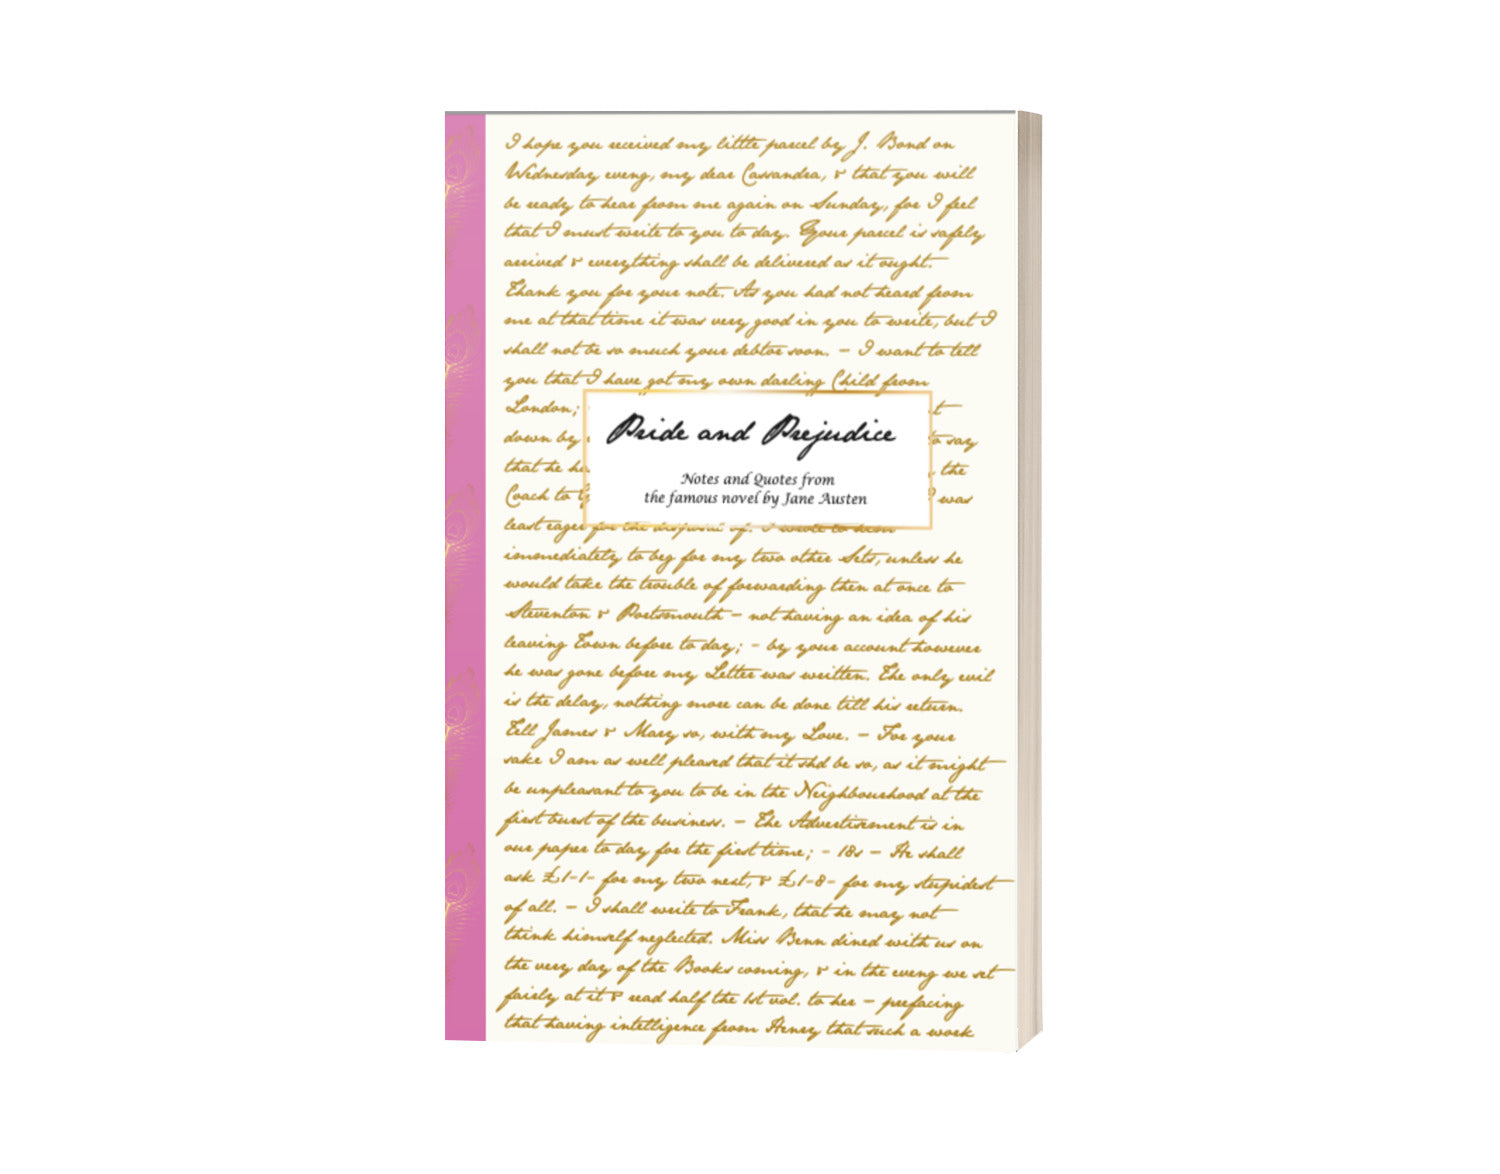 I hope you received my little parcel by J. Bond on
Wednesday eveng, my dear Cassandra, & that you will
be ready to hear from me again on Sunday, for I feel
that I must write to you to day. Your parcel is safely
arrived & everything shall be delivered as it ought.
Thank you for your note. As you had not heard from
me at that time it was very good in you to write, but I
shall not be so much your debtor soon. – I want to tell
you that I have got my own darling Child from
London;
down by
to say
that he
the
Coach to
I was
Pride and Prejudice
Notes and Quotes from
the famous novel by Jane Austen
least eager for the disposal of. I wrote to him
immediately to beg for my two other Sets, unless he
would take the trouble of forwarding them at once to
Steventon & Portsmouth – not having an idea of his
leaving Town before to day; – by your account however
he was gone before my Letter was written. The only evil
is the delay, nothing more can be done till his return.
Tell James & Mary so, with my Love. – For your
sake I am as well pleased that it shd be so, as it might
be unpleasant to you to be in the Neighbourhood at the
first burst of the business. – The Advertisement is in
our paper to day for the first time; – 18s – He shall
ask £1-1- for my two next, & £1-8- for my stupidest
of all. – I shall write to Frank, that he may not
think himself neglected. Miss Benn dined with us on
the very day of the Books coming, & in the eveng we set
fairly at it & read half the 1st vol. to her – prefacing
that having intelligence from Henry that such a work